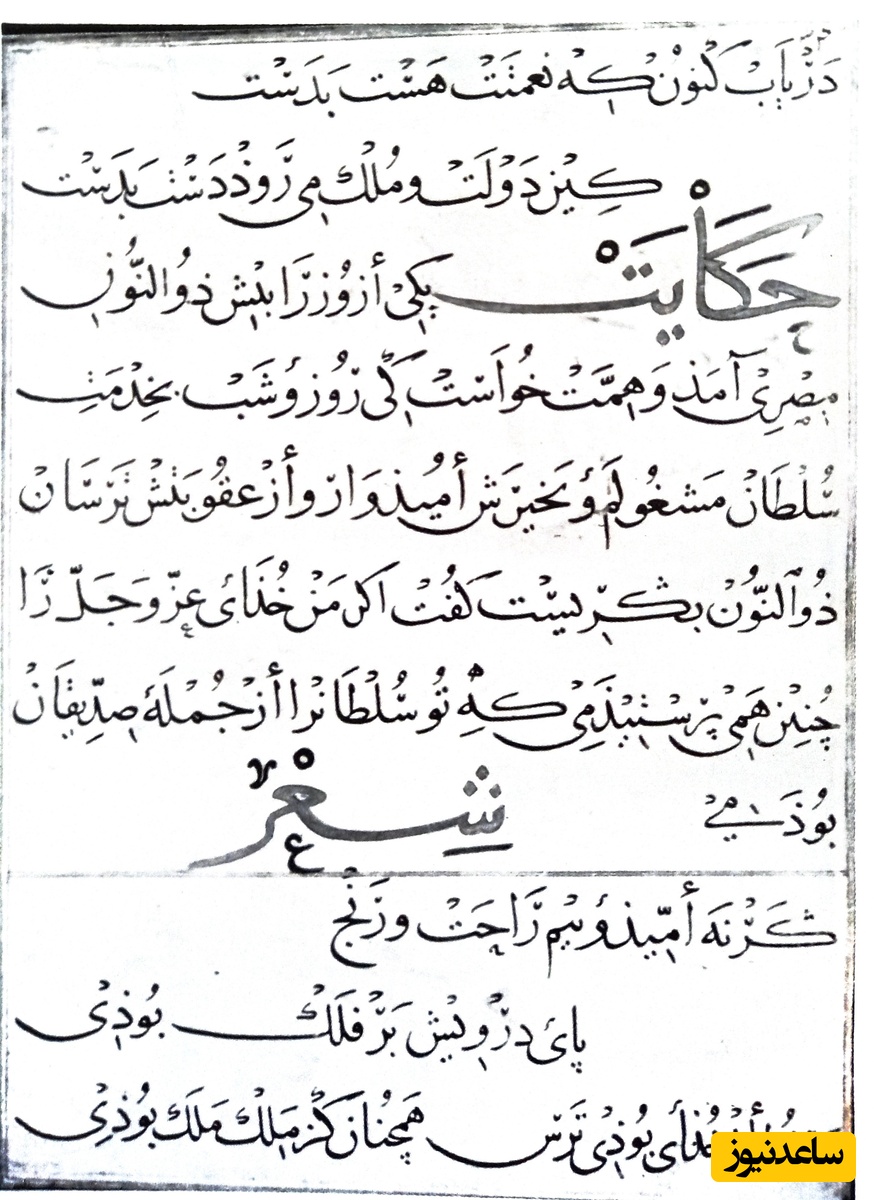 دریاب کنون که نعمتت هست بدست
کین دولت و ملک می رود دست بدست
حکایت یکی از وزرا پیش ذوالنون
مصری آمذ و همت خواست کی روز و شب بخدمت
سلطان مشغولم و بخیرش امیذوار و از عقوبتش ترسان
ذوالنون بگریست گفت اگر من خذای عز و جل را
چنین همی پرستیذمی که تو سلطانرا از جمله صدیقان
بوذمی شعر
گرنه امیذ و بیم راحت و رنج
پای درویش بر فلک بوذی
از خذای بوذی ترس همچنان کز ملک ملک بوذی
ساعدنیوز